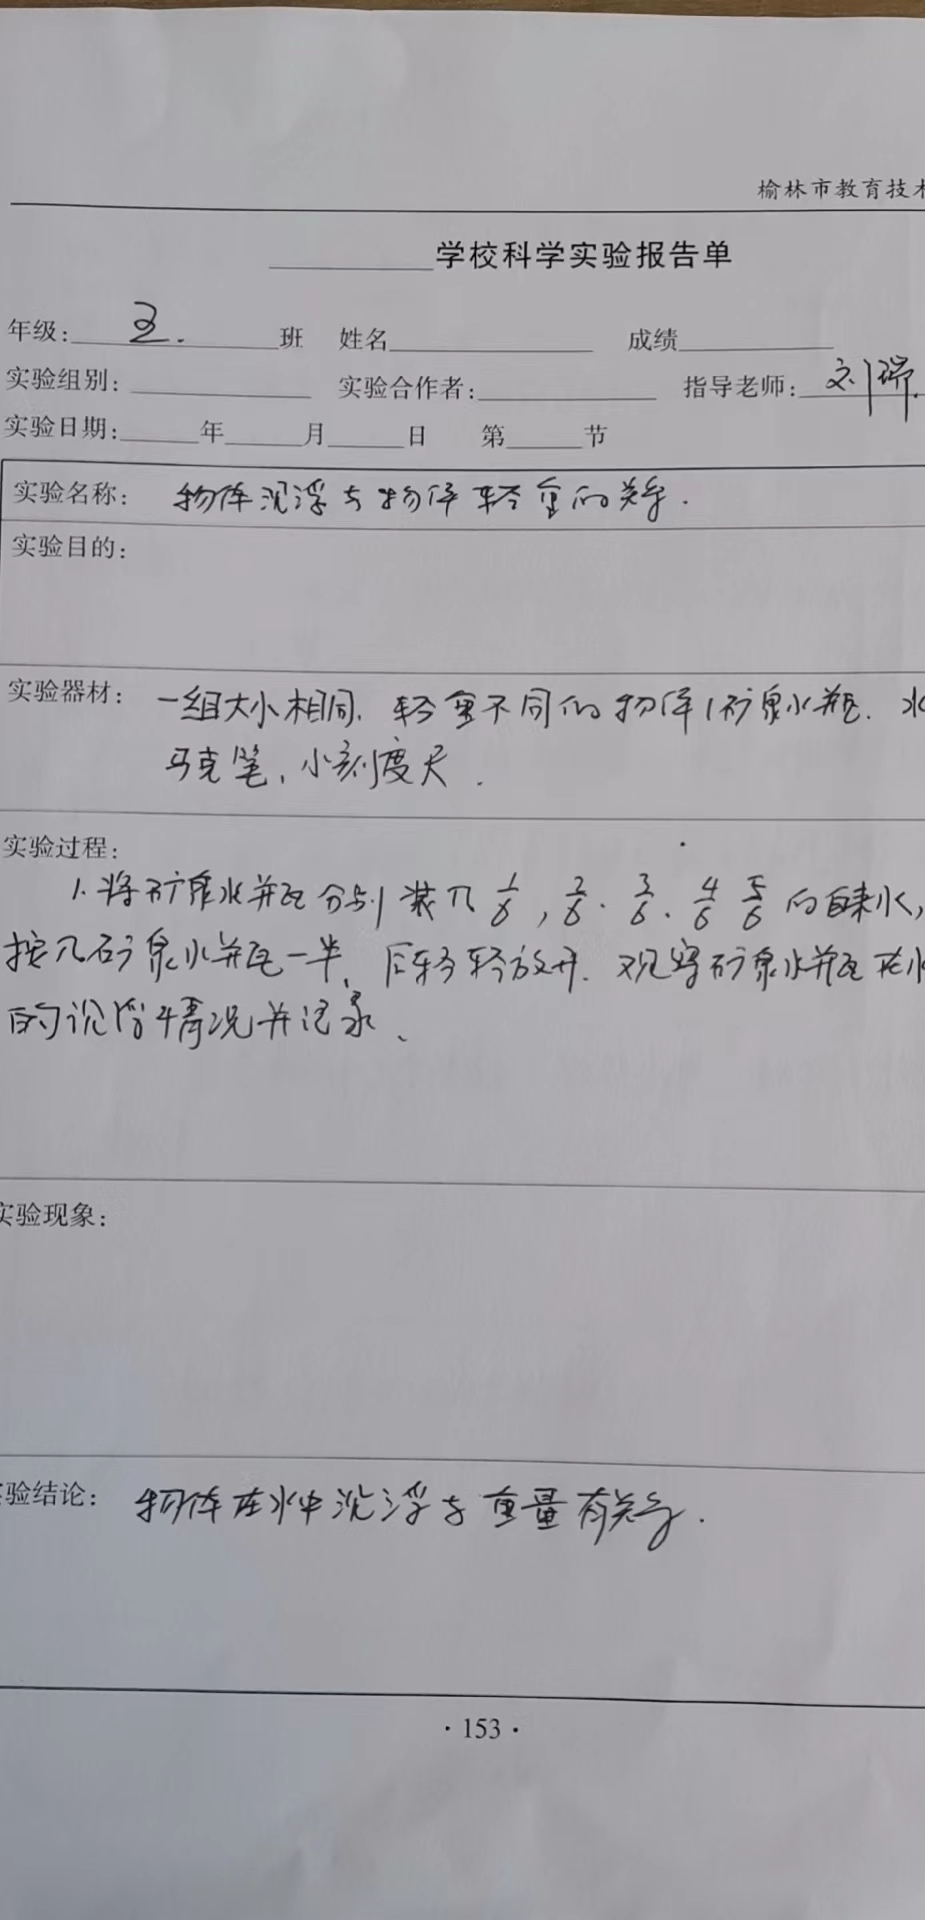 榆林市教育技术
学校科学实验报告单
年级: 五. 班 姓名 成绩
实验组别: 实验合作者: 指导老师: 刘瑞.
实验日期: 年 月 日 第 节
实验名称: 物体沉浮与物体轻重的关系.
实验目的:
实验器材: 一组大小相同. 轻重不同的物体(矿泉水瓶. 水
马克笔, 小刻度尺.
实验过程:
1. 将矿泉水瓶分别装入1/6, 2/6. 3/6. 4/6 5/6 的自来水,
按入矿泉水瓶一半, 后轻轻放开. 观察矿泉水瓶在水
的沉浮情况并记录、
实验现象:
验结论: 物体在水中沉浮与重量有关系.
·153·